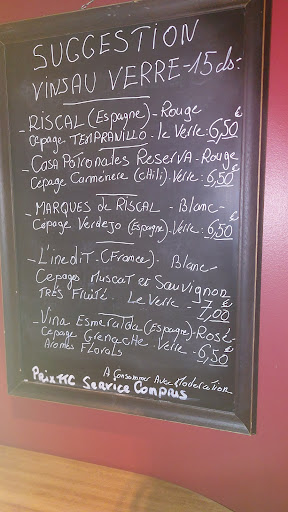 SUGGESTION
VINS AU VERRE - 15 cls-
- RISCAL (Espagne) - Rouge
Cepage TEMPRANILLO - le Verre: 6,50 €
- Casa Patronales Reserva - Rouge
Cepage Carménère (chili) - Verre: 6,50 €
- MARQUES de RISCAL - Blanc -
Cepage Verdejo (Espagne) - Verre: 6,50 €
- L'inedit - (France) - Blanc -
Cepages Muscat et Sauvignon
TRÈS Fruité - Le Verre - 7,00 €
- Vina Esmeralda (Espagne) - Rosé -
Cepage Grenache - Verre - 6,50 €
Arômes Florals
A Consommer Avec Modération
Prix TTC Service Compris